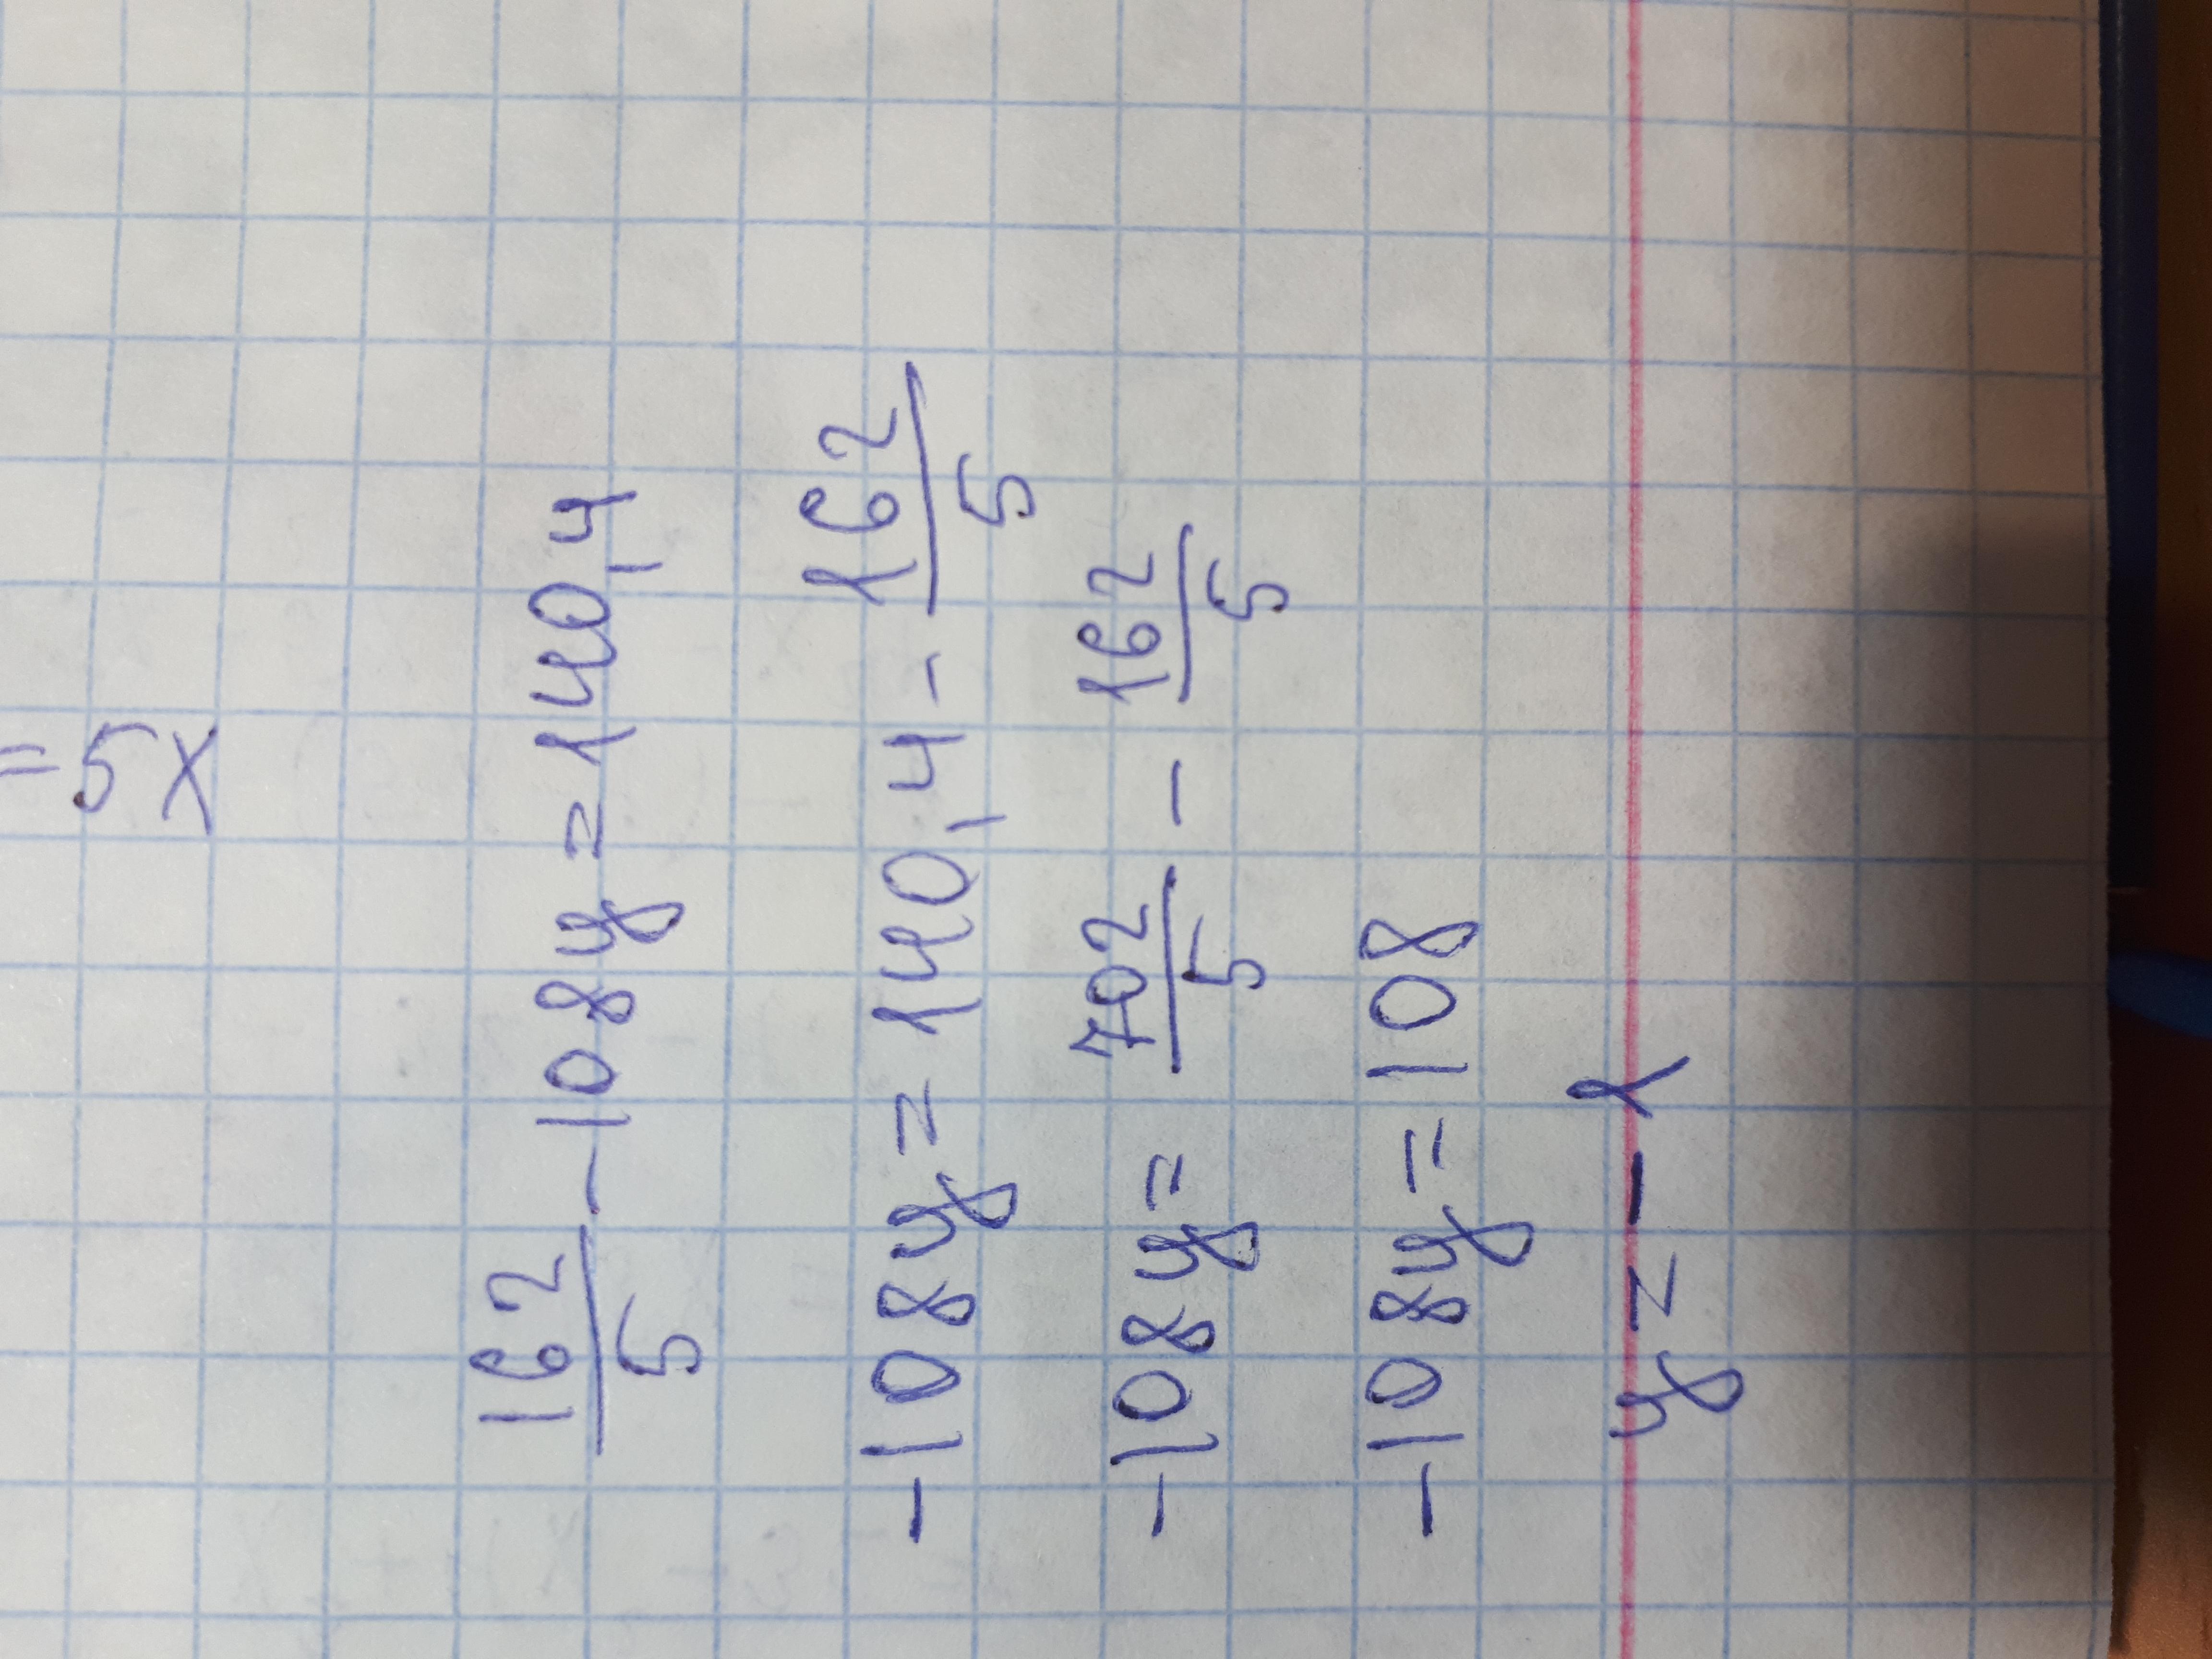 = 5x
162/5 - 108y = 140,4
-108y = 140,4 - 162/5
-108y = 702/5 - 162/5
-108y = 108
y = -1